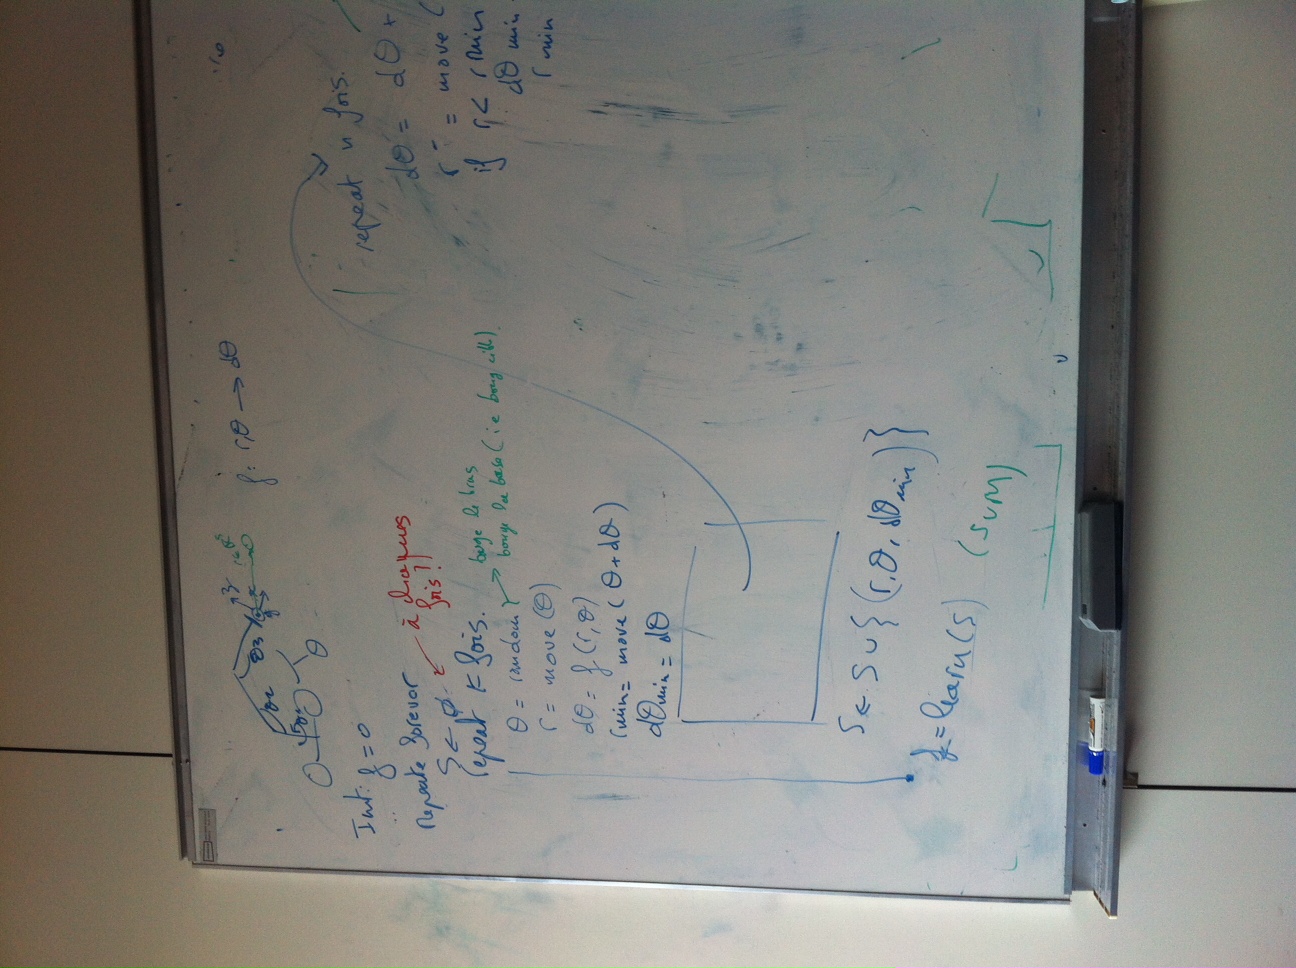 θ2
θ3
θ
f: r,θ → dθ
Init: f = 0
Repeate forever
S ← ∅
à chaques
fois?!
repeat K fois.
θ = random
bouge le bras
bouge la base (ie bouge cible).
r = move(θ)
dθ = f(r,θ)
rmin = move(θ + dθ)
dθmin = dθ
S ← S ∪ {(r, θ, dθmin)}
f = learn(S)
(SVM)
repeat n fois.
dθ = dθ +
r = move(
if r < rmin
dθ min
r min